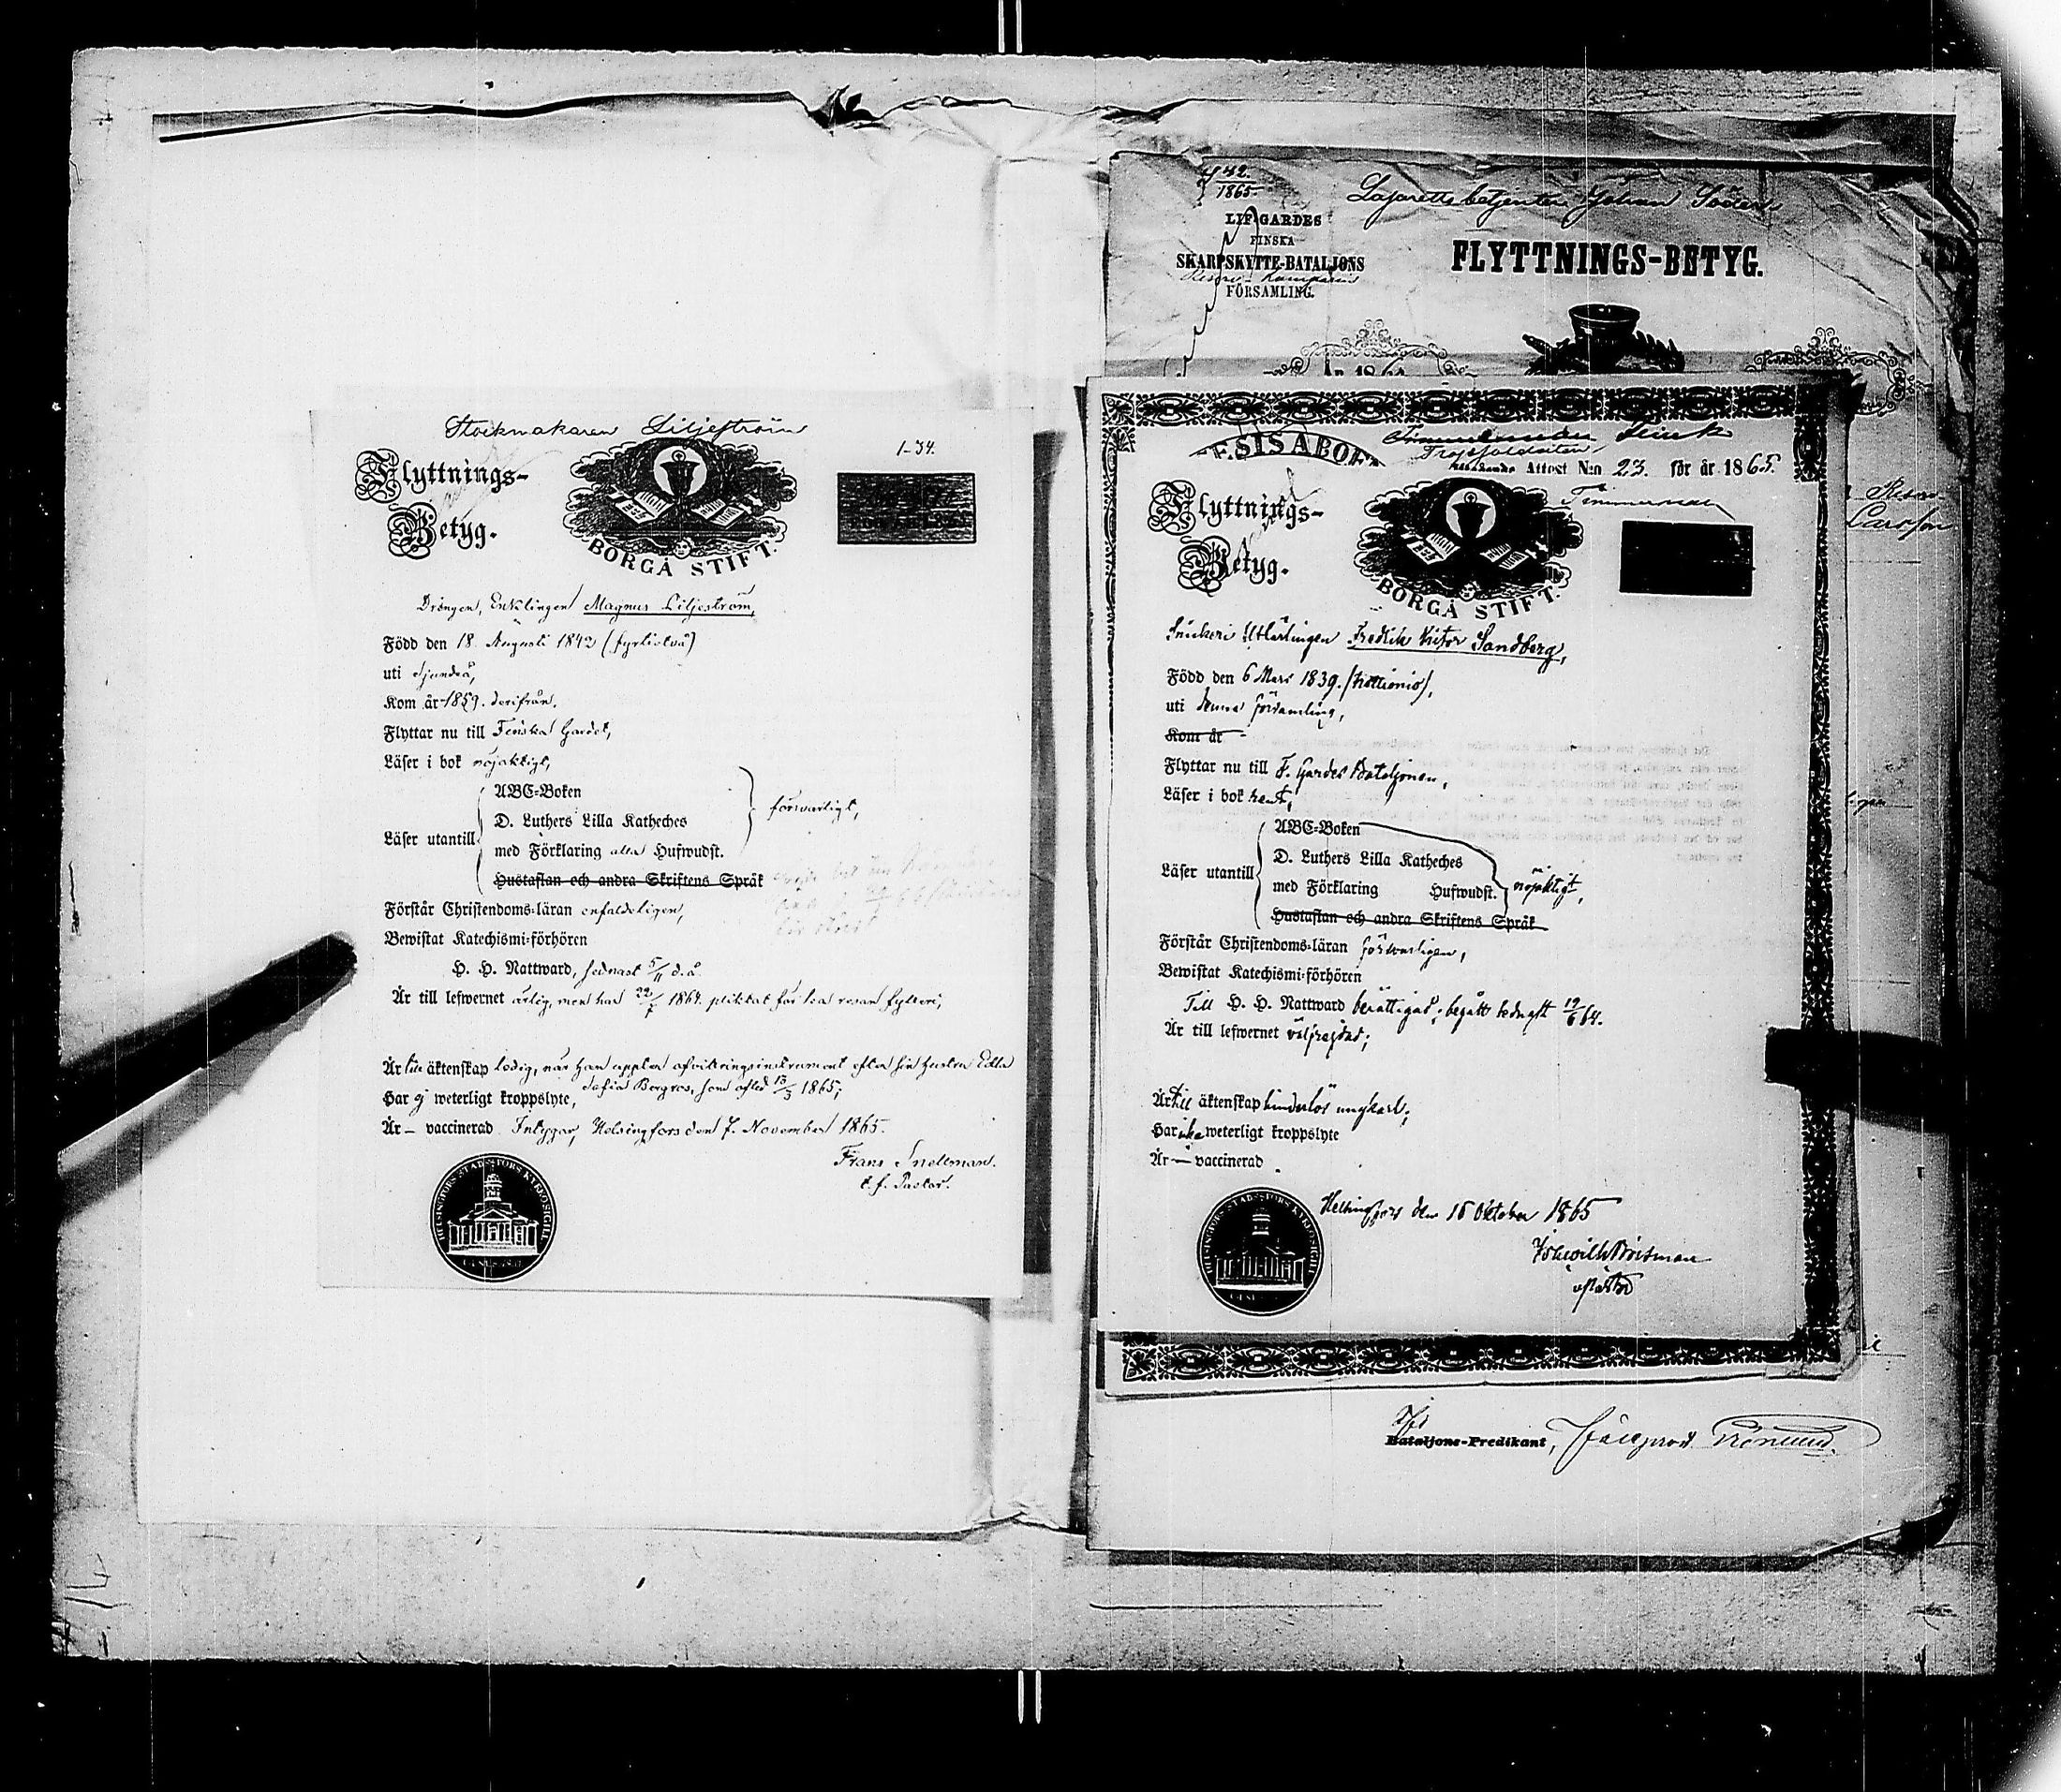 Stockmakaren Liljeström
1-34.
Flyttnings-
Betyg.
BORGÅ STIFT.
Drängen, Enklingen Magnus Liljeström,
Född den 18 Augusti 1842 (fyrtiotvå)
uti Sjundeå,
Kom år 1859. derifrån.
Flyttar nu till Finska Gardet,
Läser i bok nöjaktigt,
ABC-Boken
D. Luthers Lilla Katheches
Läser utantill
med Förklaring alla Hufwudst.
försvarligt,
Hustaflan och andra Skriftens Språk
Förstår Christendoms-läran enfaldeligen,
Bewistat Katechismi-förhören
H. H. Nattward, sednast 5/11 d.å.
Är till lefwernet ärlig, men har 22/7 1864 pliktat för 1sta resan fylleri,
Är till äktenskap ledig, när han upptar afvittringsinstrument efter sin hustru Edla
Sofia Borgros, som afled 13/3 1865;
Har ej weterligt kroppslyte,
Är – vaccinerad. Intygar, Helsingfors den 7. November 1865.
Frans Snellman.
t. f. Pastor.
HELSINGFORS STADSFÖRS. KYRKOSIGILL
42.
1865
Lazaretts betjenten Johan Söder
LIF-GARDES
FINSKA
SKARPSKYTTE-BATALJONS
Reserv-Kompanis
FÖRSAMLING.
FLYTTNINGS-BETYG.
ESIS ABOE
Timmerman
Attest N:o 23. för år 1865.
Timmerman
Flyttnings-
Betyg.
BORGÅ STIFT.
Snickeri Utlärlingen Fredrik Victor Sandberg,
Född den 6 Mars 1839. (trettionio),
uti denna församling,
Kom år
Flyttar nu till F. Gardes Bataljonen,
Läser i bok rent,
ABC-Boken
D. Luthers Lilla Katheches
Läser utantill
med Förklaring Hufwudst.
nöjaktigt,
Hustaflan och andra Skriftens Språk
Förstår Christendoms-läran försvarligen,
Bewistat Katechismi-förhören
Till H. H. Nattward berättigad; begått sednast 19/6 64.
Är till lefwernet väljregdad;
Är till äktenskap hinderlös ungkarl;
Har icke weterligt kroppslyte
Är – vaccinerad.
Helsingfors den 16 Oktober 1865
HELSINGFORS STADSFÖRS. KYRKOSIGILL
Bataljons-Predikant,